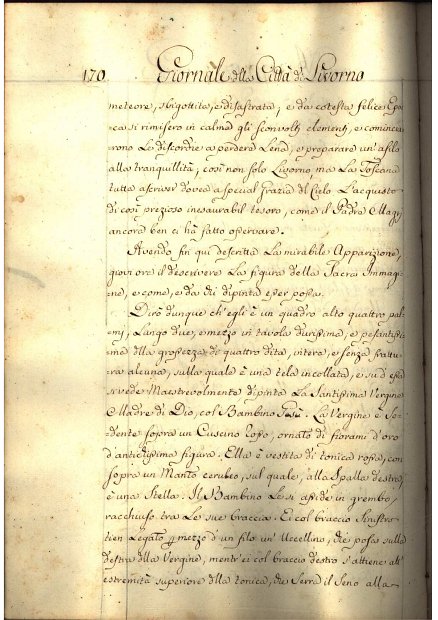 170. Giornale della Città di Livorno
meteore, sbigottita, e disastrata, e da cotesta felice Epo-
ca si rimisero in calma gli sconvolti elementi, e comincia-
rono Le discordie a perdere Lena, e prepararo un'asilo
alla tranquillità, così non solo Livorno, ma La Toscana
tutta ascriver dovea a special grazia del Cielo L'acquisto
di così prezioso inesaurabil tesoro, come il Padre Magri
ancora ben ci hà fatto osservare.
Avendo fin qui descritta La mirabile Apparizione,
giovi ora il descrivere La figura della Sacra Immagi-
ne, e come, e da chi dipinta esser possa.
Dirò dunque ch'egli è un quadro alto quattro pal-
mi, Largo due, e mezzo in tavola durissima, e pesantissi-
ma della grossezza di quattro dita, intero, e senza frattu-
ra alcuna, sulla quale è una tela incollata, e su d'essa
si vede Maestrevolmente dipinta La Santissima Vergine
Madre di Dio, col Bambino Gesù. La Vergine è Se-
dente sopra un Cuscino rosso, ornato di fiorami d'oro
d'antichissima figura. Ella è vestita di tonica rossa, con
sopra un Manto ceruleo, sul quale, alla Spalla destra,
è una Stella. Il Bambino Le si asside in grembo,
racchiuso tra Le sue braccia. Ei col braccio Sinistro
tien Legato p mezzo d'un filo un'Uccellino, che posa sulla
destra della Vergine, mentr'ei col braccio destro s'attiene all'
estremità superiore della tonica, che Serra il Seno alla-